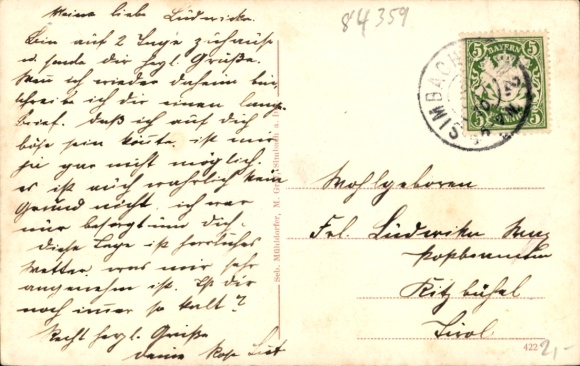 Meine liebe Ludwicka.
Bin auf 2 Tage zuhause
u. sende dir hrzl. Grüße.
Wenn ich wieder daheim bin,
schreibe ich dir einen langen
Brief. Daß ich auf dich
böse sein könnte, ist mir
ja gar nicht möglich,
es ist auch wahrlich kein
Grund nicht. ich war
nur besorgt um dich.
Diese Tage ist herrliches
Wetter, was mir sehr
angenehm ist. Ist dir
noch immer so kalt?
Recht herzl. Grüße
deine
84359
5 BAYERN 5
SIMBACH
Wohlgeboren
Frl. Ludwika
Kitzbühel
Tirol.
Seb. Mühldorfer, M. Simbach a. I.
422
2,-